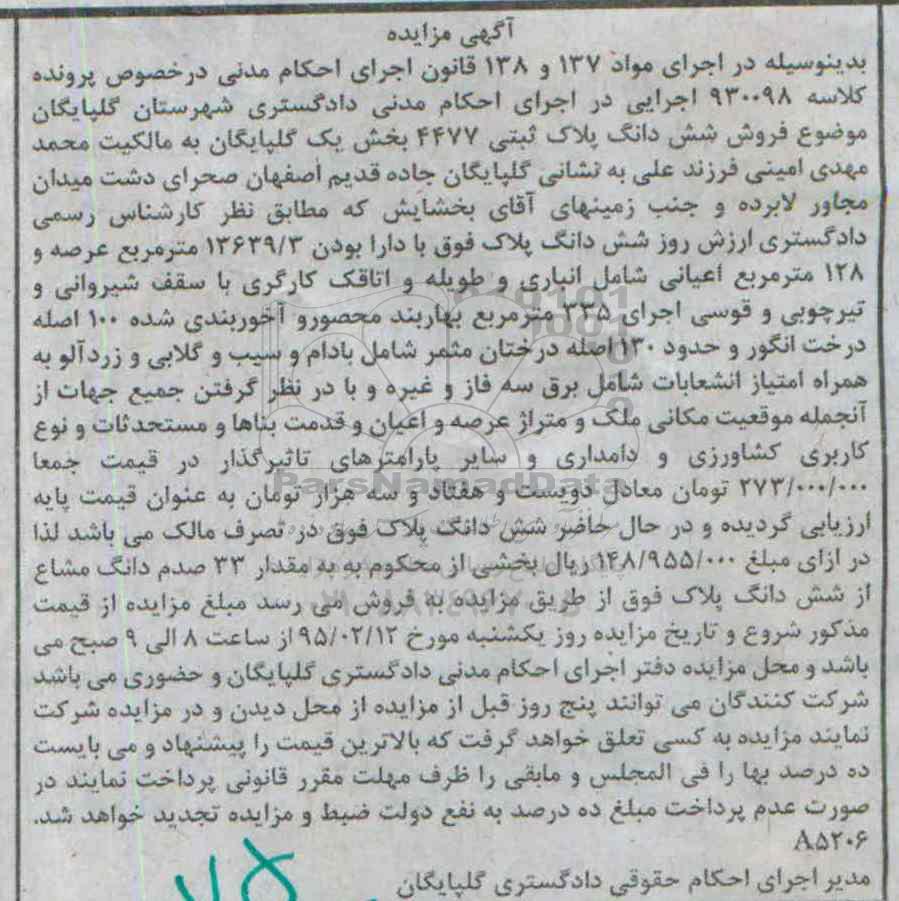 آگهی مزایده
بدینوسیله در اجرای مواد ۱۳۷ و ۱۳۸ قانون اجرای احکام مدنی درخصوص پرونده
کلاسه ۹۳۰۰۹۸ اجرایی در اجرای احکام مدنی دادگستری شهرستان گلپایگان
موضوع فروش شش دانگ پلاک ثبتی ۴۴۷۷ بخش یک گلپایگان به مالکیت محمد
مهدی امینی فرزند علی به نشانی گلپایگان جاده قدیم اصفهان صحرای دشت میدان
مجاور لابرده و جنب زمینهای آقای بخشایش که مطابق نظر کارشناس رسمی
دادگستری ارزش روز شش دانگ پلاک فوق با دارا بودن ۱۳۶۳۹/۳ مترمربع عرصه و
۱۲۸ مترمربع اعیانی شامل انباری و طویله و اتاقک کارگری با سقف شیروانی و
تیرچوبی و قوسی اجرای ۲۳۵ مترمربع بهاربند محصورو آخوربندی شده ۱۰۰ اصله
درخت انگور و حدود ۱۳۰ اصله درختان مثمر شامل بادام و سیب و گلابی و زردآلو به
همراه امتیاز انشعابات شامل برق سه فاز و غیره و با در نظر گرفتن جمیع جهات از
آنجمله موقعیت مکانی ملک و متراژ عرصه و اعیان و قدمت بناها و مستحدثات و نوع
کاربری کشاورزی و دامداری و سایر پارامترهای تاثیرگذار در قیمت جمعا
۲۷۳/۰۰۰/۰۰۰ تومان معادل دویست و هفتاد و سه هزار تومان به عنوان قیمت پایه
ارزیابی گردیده و در حال حاضر شش دانگ پلاک فوق در تصرف مالک می باشد لذا
در ازای مبلغ ۱۴۸/۹۵۵/۰۰۰ ریال بخشی از محکوم به به مقدار ۳۳ صدم دانگ مشاع
از شش دانگ پلاک فوق از طریق مزایده به فروش می رسد مبلغ مزایده از قیمت
مذکور شروع و تاریخ مزایده روز یکشنبه مورخ ۹۵/۰۲/۱۲ از ساعت ۸ الی ۹ صبح می
باشد و محل مزایده دفتر اجرای احکام مدنی دادگستری گلپایگان و حضوری می باشد
شرکت کنندگان می توانند پنج روز قبل از مزایده از محل دیدن و در مزایده شرکت
نمایند مزایده به کسی تعلق خواهد گرفت که بالاترین قیمت را پیشنهاد و می بایست
ده درصد بها را فی المجلس و مابقی را ظرف مهلت مقرر قانونی پرداخت نمایند در
صورت عدم پرداخت مبلغ ده درصد به نفع دولت ضبط و مزایده تجدید خواهد شد.
A۵۲۰۶
مدیر اجرای احکام حقوقی دادگستری گلپایگان
ParsNamadData